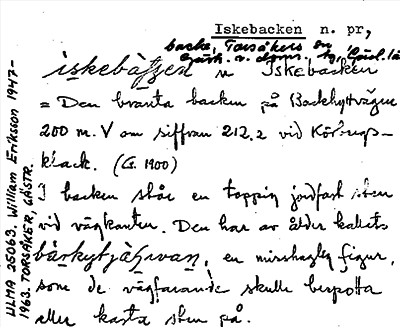 Iskebacken n. pr,
backe, Torsåkers sn
Gästr. v. doms. hg, Gävl. län
iskebàkken n Iskebacken
= Den branta backen på Backhyttvägen
200 m. V om siffran 212.2 vid Körbergs-
klack. (G. 1900)
I backen står en toppig jordfast sten
vid vägkanten. Den har av ålder kallats
, en misshaglig figur,
som de vägfarande skulle bespotta
eller kasta sten på.
ULMA 25063. William Eriksson 1947–
1963. TORSÅKER, GÄSTR.